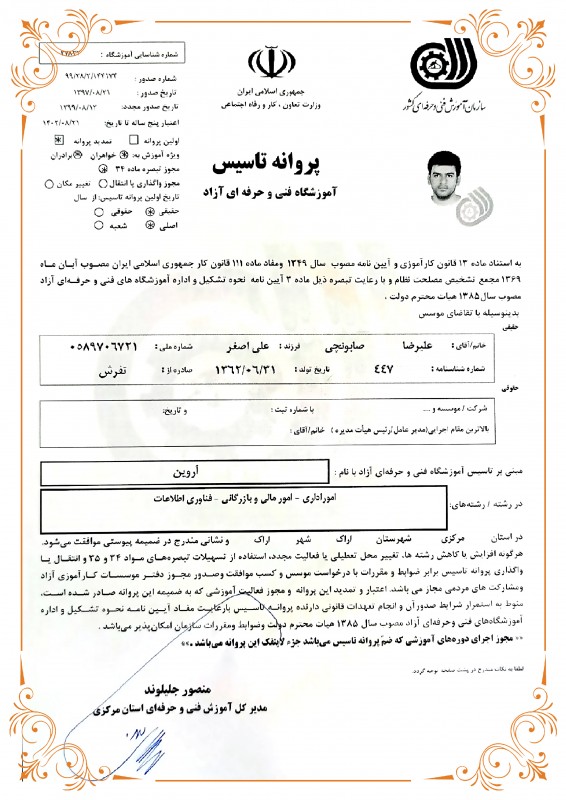 شماره شناسایی آموزشگاه :
شماره صدور : ۹۹/۲۸/۲/۱۴۲۱۷۴
تاریخ صدور : ۱۳۹۷/۰۸/۲۱
تاریخ صدور مجدد: ۱۳۹۹/۰۸/۱۲
اعتبار پنج ساله تا تاریخ: ۱۴۰۲/۰۸/۲۱
اولین پروانه تمدید پروانه
ویژه آموزش به: خواهران برادران
مجوز تبصره ماده ۳۴
مجوز واگذاری یا انتقال تغییر مکان
تاریخ اولین پروانه تاسیس: از سال
حقیقی حقوقی
اصلی شعبه
جمهوری اسلامی ایران
وزارت تعاون ، کار و رفاه اجتماعی
سازمان آموزش فنی و حرفه ای کشور
پروانه تاسیس
آموزشگاه فنی و حرفه ای آزاد
به استناد ماده ۱۳ قانون کارآموزی و آیین نامه مصوب سال ۱۳۴۹ ومفاد ماده ۱۱۱ قانون کار جمهوری اسلامی ایران مصوب آبان ماه
۱۳۶۹ مجمع تشخیص مصلحت نظام و با رعایت تبصره ذیل ماده ۳ آیین نامه نحوه تشکیل و اداره آموزشگاه های فنی و حرفه‌ای آزاد
مصوب سال ۱۳۸۵ هیات محترم دولت ،
بدینوسیله با تقاضای موسس
حقیقی
خانم/آقای : علیرضا صابونچی فرزند : علی اصغر شماره ملی : ۰۵۸۹۷۰۶۷۳۱
شماره شناسنامه : ۴۴۷ تاریخ تولد : ۱۳۶۲/۰۶/۳۱ صادره از : تفرش
حقوقی
شرکت / موسسه و .... با شماره ثبت : و تاریخ:
بالاترین مقام اجرایی(مدیر عامل/رئیس هیأت مدیره ) خانم/آقای :
مبنی بر تاسیس آموزشگاه فنی و حرفه‌ای آزاد با نام : آروین
در رشته / رشته‌های: اموراداری - امور مالی و بازرگانی - فناوری اطلاعات
در استان مرکزی شهرستان اراک شهر اراک و نشانی مندرج در ضمیمه پیوستی موافقت می‌شود.
هرگونه افزایش یا کاهش رشته ها، تغییر محل تعطیلی یا فعالیت مجدد، استفاده از تسهیلات تبصره‌های مواد ۳۴ و ۳۵ و انتقال یا
واگذاری پروانه تاسیس برابر ضوابط و مقررات با درخواست موسس و کسب موافقت وصدور مجوز دفتر موسسات کارآموزی آزاد
ومشارکت های مردمی مجاز می باشد. اعتبار و تمدید این پروانه و مجوز فعالیت آموزشی که به ضمیمه این پروانه صادر شده است،
منوط به استمرار شرایط صدور آن و انجام تعهدات قانونی دارنده پروانه تاسیس بارعایت مفاد آیین نامه نحوه تشکیل و اداره
آموزشگاه‌های فنی وحرفه‌ای آزاد مصوب سال ۱۳۸۵ هیات محترم دولت وضوابط ومقررات سازمان امکان‌پذیر می‌باشد .
«« مجوز اجرای دوره‌های آموزشی که ضم پروانه تاسیس می‌باشد جزء لاینفک این پروانه می‌باشد .»»
لطفا به نکات مندرج در پشت صفحه توجه گردد.
منصور جلیلوند
مدیر کل آموزش فنی و حرفه‌ای استان مرکزی